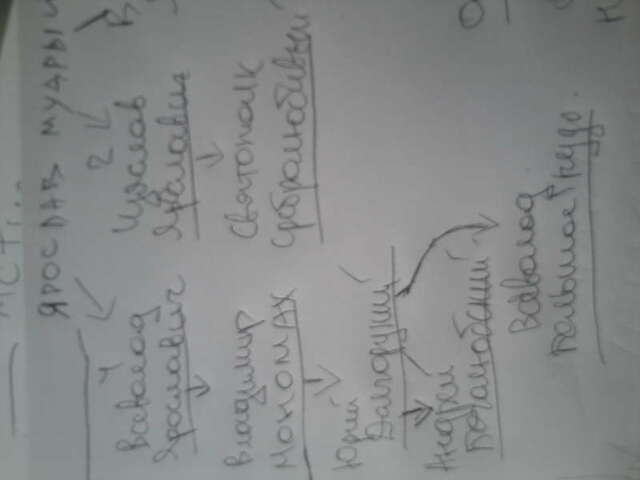 ЯРОСЛАВ МУДРЫ
4
2
Всеволод
Ярославич
Изяслав
Ярославич
В
Владимир
МОНОМАХ
Святополк
Сребролюбивый
Юрий
Долгорукий
Андрей
Боголюбский
Всеволод
Большое Гнездо.